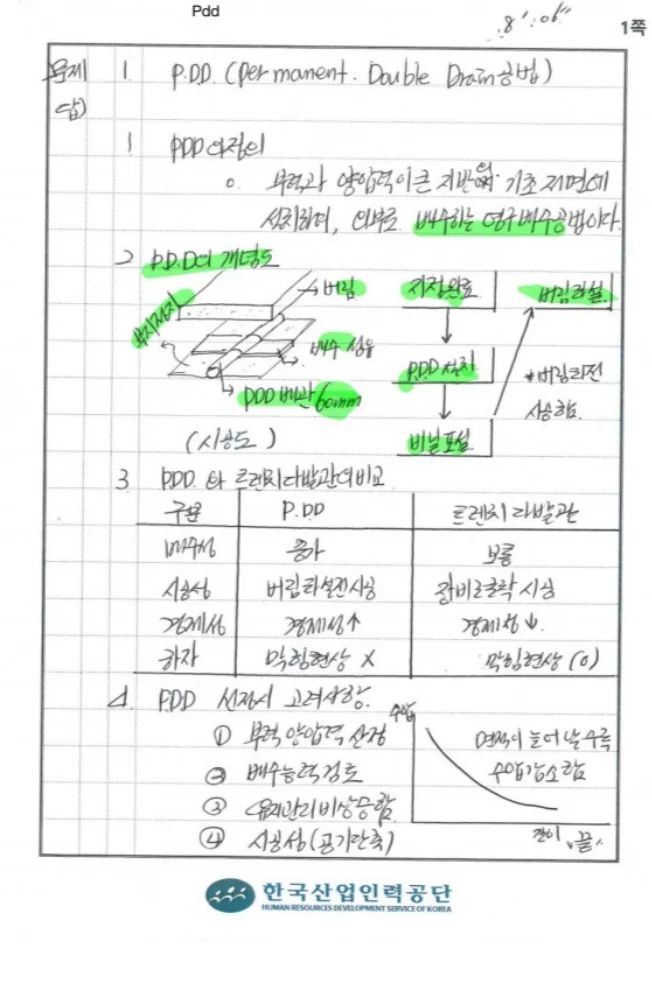 Pdd
8' : 06"
1쪽
문제 1. P.D.D. (Permanent. Double Drain 공법)
답)
1 PDD의 정의
o. 부력과 양압력이 큰 지반의 기초 저면에
설치하며, 외부로 배수하는 영구배수공법이다.
2 P.D.D의 개념도
부직포지
→버림
배수 섬유
PDD 배관 60mm
(시공도)
지정완료
P.D.D 설치
비닐포설
버림타설
* 버림타전
시공함.
3 PDD 와 트렌치다발관의 비교
구분 P.DD 트렌치 다발관
배수성 증가 보통
시공성 버림타설전시공 장비로굴착 시공
경제성 경제성↑ 경제성↓.
하자 막힘현상 X 막힘현상 (O)
4. PDD 선정시 고려사항.
① 부력 양압력 산정
② 배수능력 검토
③ 유지관리비상승함
④ 시공성(공기단축)
수압
면적이 늘어날수록
수압감소함
깊이
"끝"
한국산업인력공단
HUMAN RESOURCES DEVELOPMENT SERVICE OF KOREA